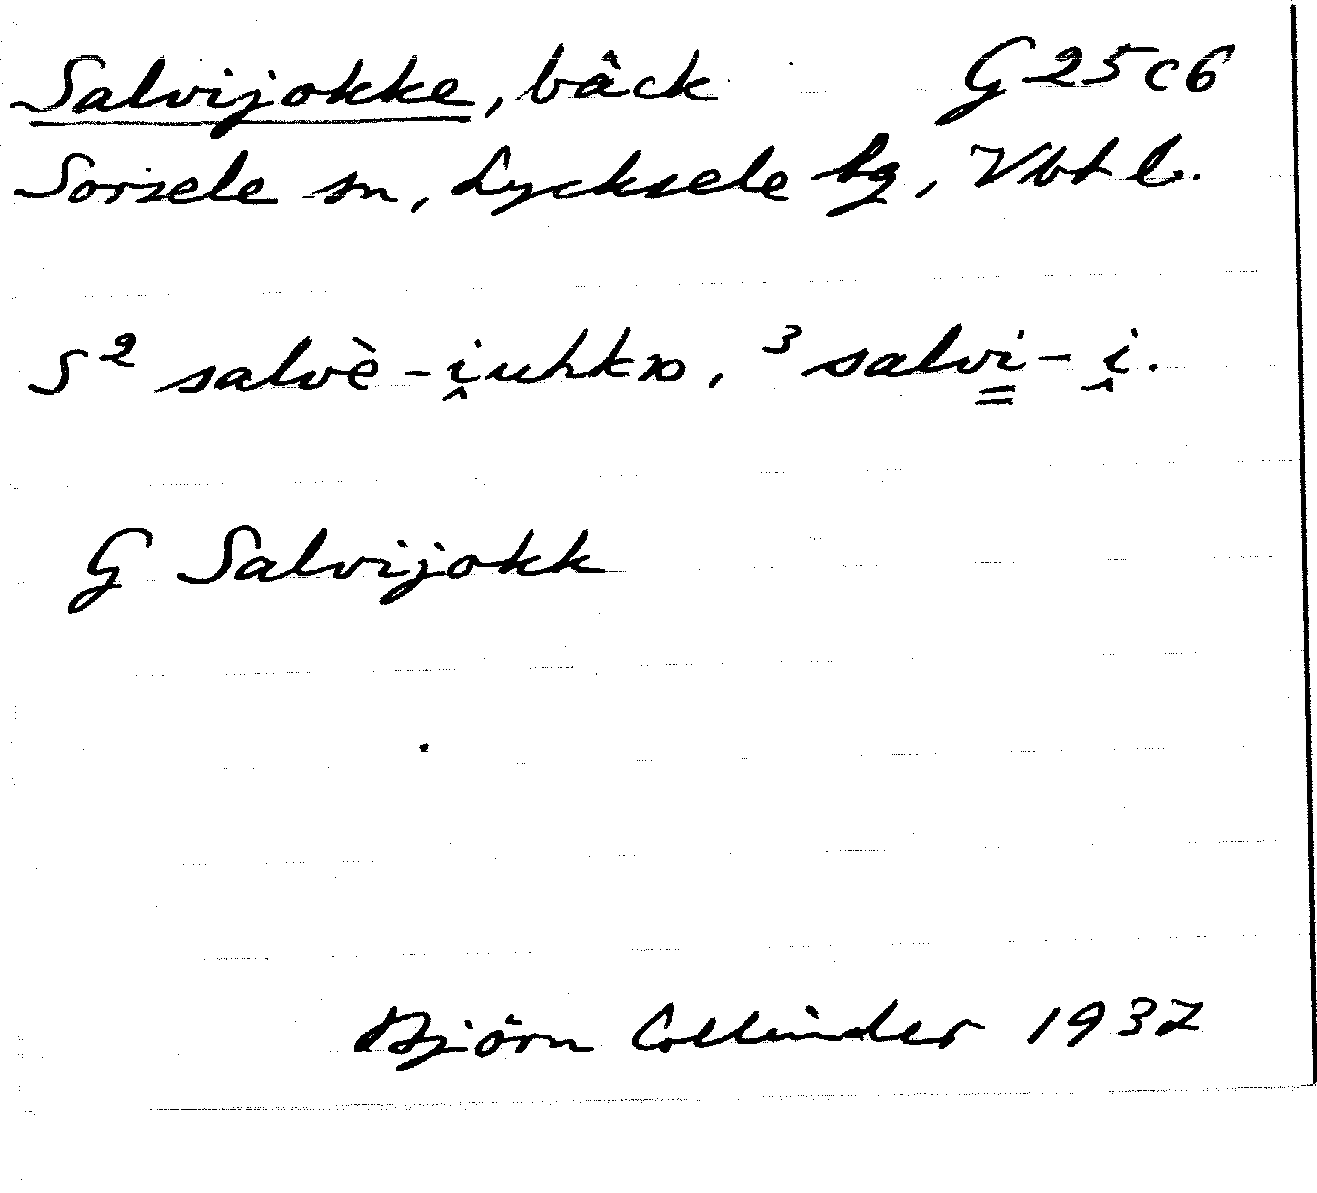 Salvijokke, bäck G 25 c 6
Sorsele sn, Lycksele lg, Vbtl.
S² salvè-i̯uhkɷ, ³salvi̳-i̯.
G Salvijokk
Björn Collinder 1937